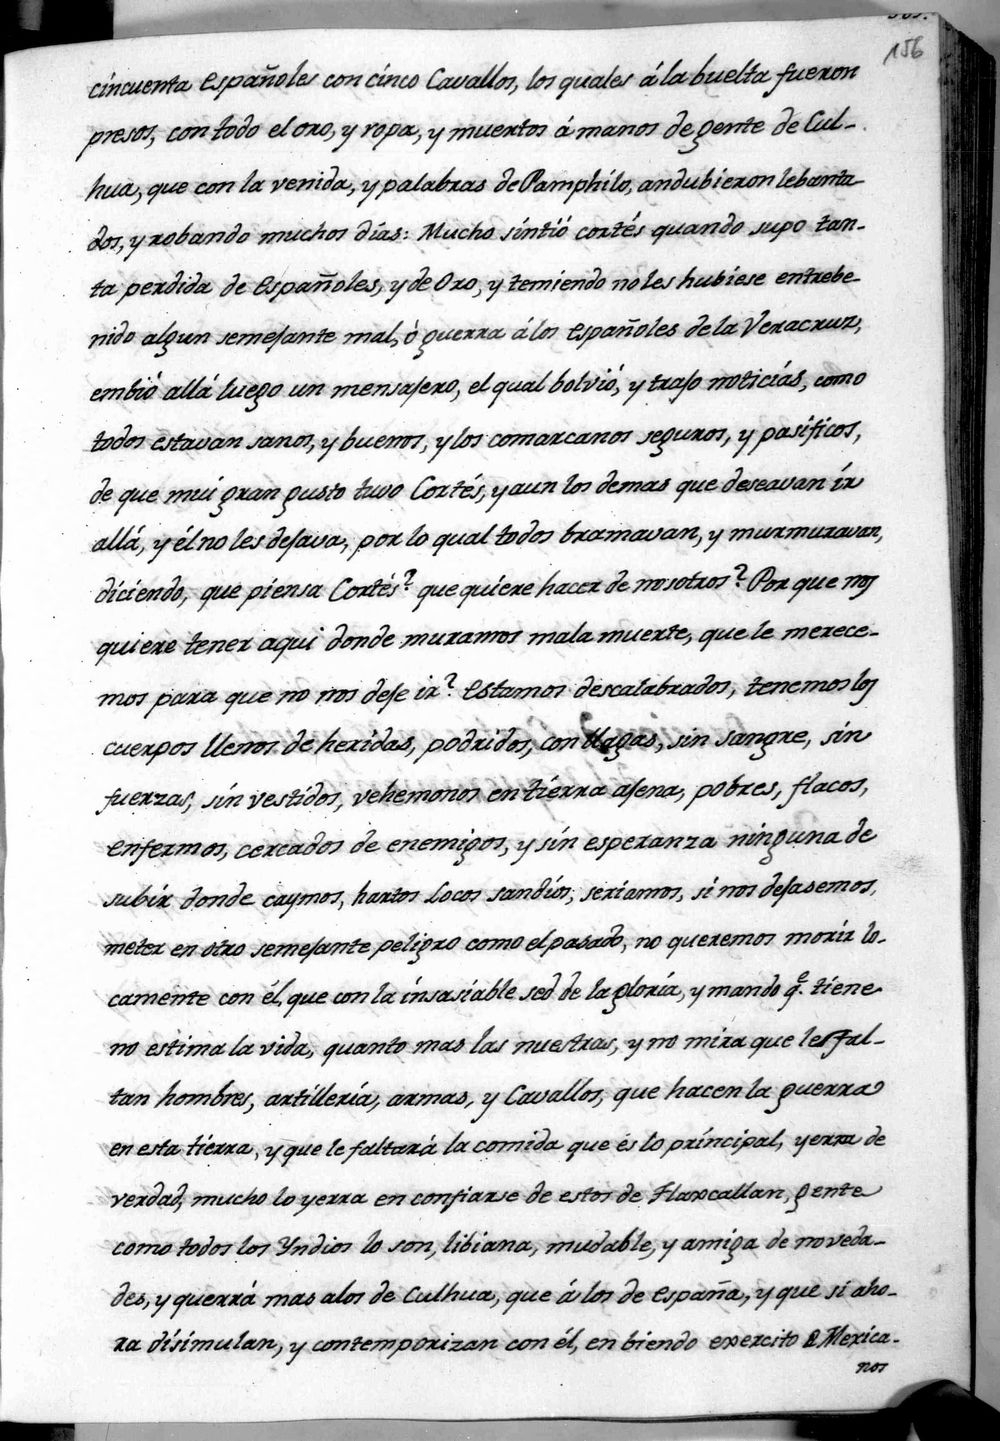 156
cincuenta españoles con cinco Cavallos, los quales á la buelta fueron
presos, con todo el oro, y ropa, y muertos á manos de gente de Cul-
hua, que con la venida, y palabras de Pamphilo, andubieron lebanta
dos, y robando muchos dias: Mucho sintió cortés quando supo tan-
ta perdida de españoles, y de Oro, y temiendo no les hubiese entrebe-
nido algun semejante mal, ò guerra á los españoles de la Veracruz,
embió allá luego un mensajero, el qual bolvió, y trajo noticias, como
todos estavan sanos, y buenos, y los comarcanos seguros, y pasificos,
de que mui gran gusto tuvo Cortés, y aun los demas que deseavan ir
allá, y él no les dejava, por lo qual todos bramavan, y murmuravan,
diciendo, que piensa Cortés? que quiere hacer de nosotros? Por que nos
quiere tener aqui donde muramos mala muerte, que le merece-
mos para que no nos deje ir? estamos descalabrados, tenemos los
cuerpos llenos de heridas, podridos, con llagas, sin sangre, sin
fuerzas, sin vestidos, vehemonos en tierra ajena, pobres, flacos,
enfermos, cercados de enemigos, y sin esperanza ninguna de
subir donde caymos, hartos Locos sandios, seriamos, si nos dejasemos,
meter en otro semejante peligro como el pasado, no queremos morir lo-
camente con él, que con la insasiable sed de la gloria, y mando q.e tiene
no estima la vida, quanto mas las nuestras, y no mira que les fal-
tan hombres, artilleria, armas, y Cavallos, que hacen la guerra
en esta tierra, y que le faltará la comida que és lo principal, yerra de
verdad, mucho lo yerra en confiarse de estos de Tlaxcallan, gente
como todos los Yndios lo son, libiana, mudable, y amiga de noveda-
des, y querrá mas a los de Culhua, que á los de españa, y que si aho-
ra disimulan, y contemporizan con él, en biendo exercito de Mexica-
nos